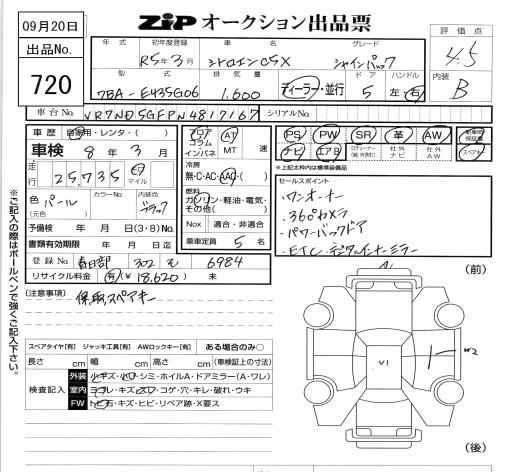 09月20日
出品No.
720
ZIP オークション出品票
評価点
4.5
内装
B
年式
初年度登録
R5年3月
車名
シトロエンC5X
グレード
シャインパック
型式
7BA-E435G06
排気量
1,600
ディーラー・並行
ドア
5
ハンドル
左 右
車台No.
VR7ND5GFPN4817167
シリアルNo.
車歴 自家用・レンタ・( )
車検 8年3月
走行 25,735 キロ マイル
色 パール
(元色)
カラーNo.
内装色
ブラック
予備検 年 月 日(3・8)No.
書類有効期限 年 月 日迄
登録No. 春日部 302 6984
リサイクル料金 有(¥18,620) 未
フロア
コラム
インパネ
AT
MT
速
冷房
無・C・AC・AAC・( )
燃料
ガソリン・軽油・電気・
その他( )
Nox 適合・非適合
乗車定員 5名
PS PW SR 革 AW 新車時保証書
ナビ エアB Dチューナー 社外ナビ 社外AW スペアキー
※上記太枠内は標準装備品
セールスポイント
・ワンオーナー
・360°カメラ
・パワーバックドア
・ETC・デジタルインナーミラー
[注意事項]
保、取、スペアキー
スペアタイヤ[有] ジャッキ工具[有] AWロックキー[有] ある場合のみ○
長さ cm 幅 cm 高さ cm (車検証上の寸法)
検査記入
外装 小キズ・小凹・シミ・ホイルA・ドアミラー(A・ワレ)
室内 ヨゴレ・キズ・スレ・コゲ・穴・キレ・破れ・ウキ
FW トビ石・キズ・ヒビ・リペア跡・X要ス
A1
(前)
V1
W2
(後)
※ご記入の際はボールペンで強くご記入下さい。